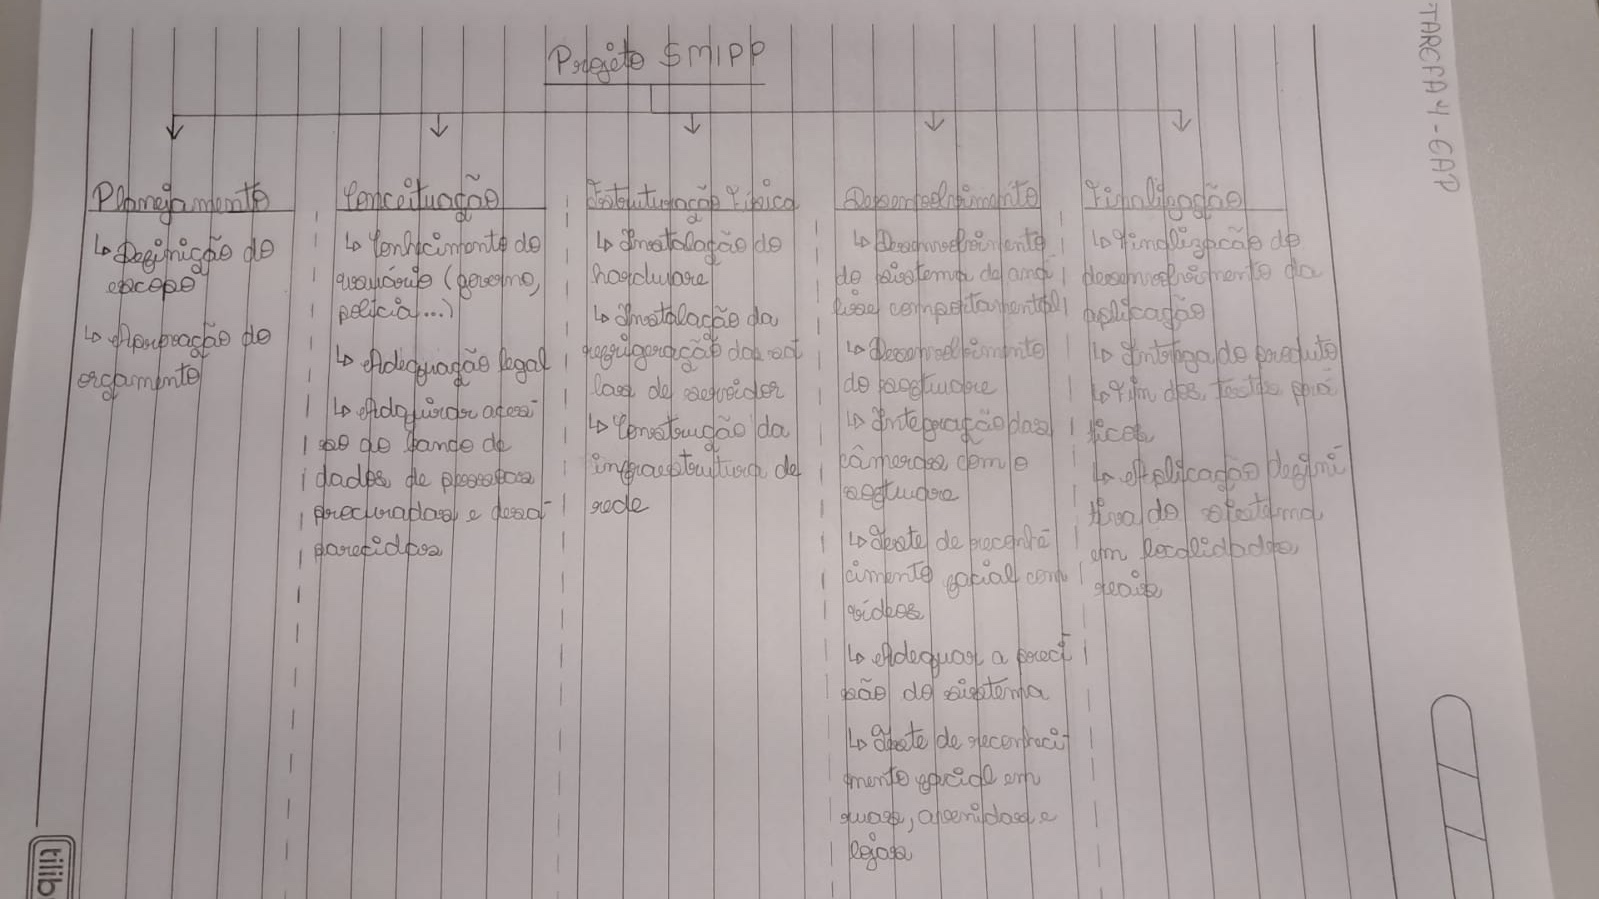 Projeto SMIPP
TAREFA 4 - GAP
Planejamento
↳ Definição do
escopo
↳ Aprovação do
orçamento
Conceituação
↳ Conhecimento do
usuário (governo,
polícia...)
↳ Adequação legal
↳ Adquirir aces-
so ao banco de
dados de pessoas
procuradas e desa-
parecidas
Estruturação Física
↳ Instalação do
hardware
↳ Instalação da
refrigeração das sa-
las de servidor
↳ Construção da
infraestrutura de
rede
Desenvolvimento
↳ Desenvolvimento
do sistema de aná-
lise comportamental
↳ Desenvolvimento
do software
↳ Integração das
câmeras com o
software
↳ Teste de reconhe-
cimento facial com
vídeos
↳ Adequar a preci-
são do sistema
↳ Teste de reconheci-
mento facial em
ruas, avenidas e
lojas
Finalização
↳ Finalização do
desenvolvimento da
aplicação
↳ Entrega do produto
↳ Fim dos testes prá-
ticos
↳ Aplicação defini-
tiva do sistema
em localidades
reais
tilib